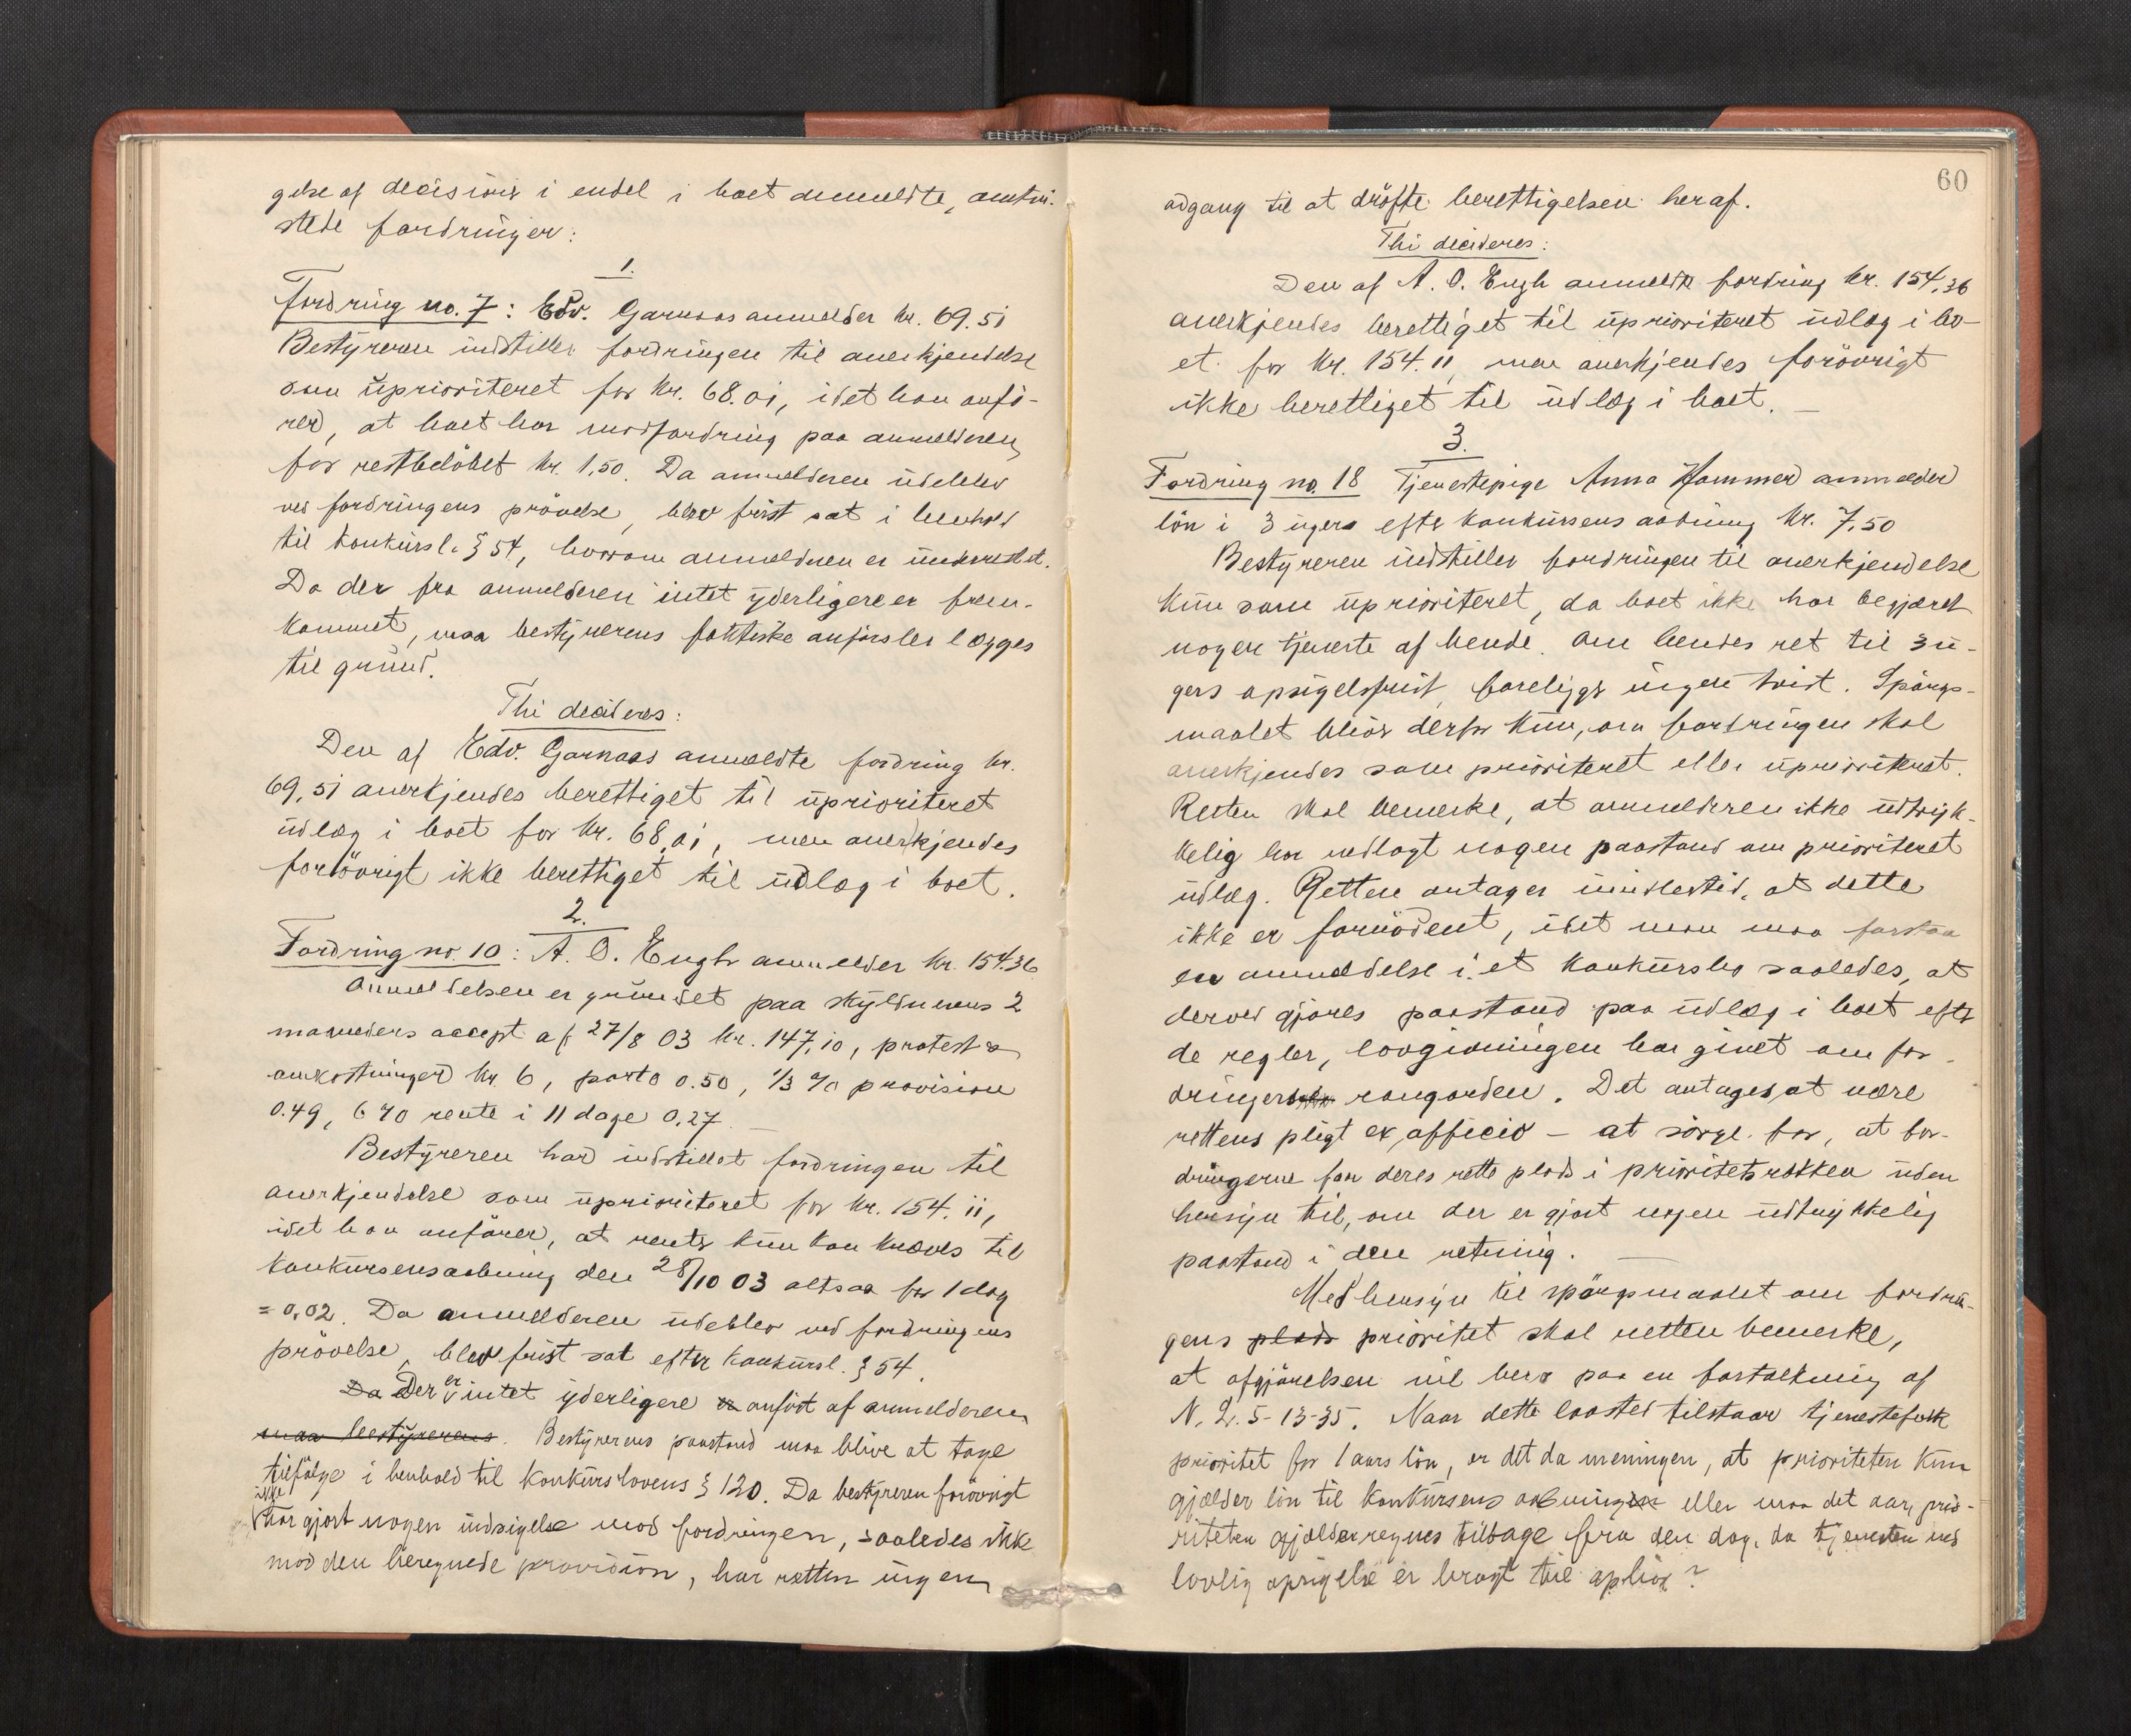 gelse af decision i endel i boet anmeldte, omtvi-
stede fordringer:
1.
Fordring no. 7: Edv. Garnaas anmelder kr. 69.51
Bestyreren indstiller fordringen til anerkjendelse
som uprioriteret for kr. 68.01, idet han anfö-
rer, at boet har modfordring paa anmelderen
for restbelöbet kr. 1.50. Da anmelderen udeblev
ved fordringens prövelse, blev frist sat i henhold
til konkursl. § 54, hvorom anmelderen er underrettet.
Da der fra anmelderen intet yderligere er frem-
kommet, maa bestyrerens faktiske anförsler lægges
til grund.
Thi decideres:
Den af Edv. Garnaas anmeldte fordring kr.
69,51 anerkjendes berettiget til uprioriteret
udlæg i boet for kr. 68,01, men anerkjendes
forövrigt ikke berettiget til udlæg i boet.
2.
Fordring no. 10: A. O. Engh anmelder kr. 154.36
Anmeldelsen er grundet paa skyldnerens 2
maaneders accept af 27/8 03 kr. 147,10, protest
omkostninger kr. 6, porto 0.50, 1/3 % provision
0.49, 6 % rente i 11 dage 0.27.
Bestyreren har indstillet fordringen til
anerkjendelse som uprioriteret for kr. 154.11,
idet han anfører, at rente kun kan kræves til
konkursens aabning den 28/10 03 altsaa for 1 dag
= 0,02. Da anmelderen udeblev ved fordringens
prövelse, blev frist sat efter konkursl. § 54.
Da Der er intet yderligere er anfört af anmelderen
maa bestyrerens. Bestyrerens paastand maa blive at tage
tilfölge i henhold til konkurslovens § 120. Da bestyreren forövrigt
ikke har gjort nogen indsigelse mod fordringen, saaledes ikke
mod den beregnede provision, har retten ingen
60
adgang til at dröfte berettigelsen heraf.
Thi decideres:
Den af A. O. Engh anmeldte fordring kr. 154,36
anerkjendes berettiget til uprioriteret udlæg i bo-
et for kr. 154.11, men anerkjendes forövrigt
ikke berettiget til udlæg i boet. —
3.
Fordring no. 18 Tjenestepige Anna Hammer anmelder
lön i 3 uger efter konkursens aabning kr. 7.50
Bestyreren indstiller fordringen til anerkjendelse
kun som uprioriteret, da boet ikke har begjæret
nogen tjeneste af hende. Om hendes ret til 3 u-
gers opsigelsfrist foreligger ingen tvist. Spörgs-
maalet bliver derfor kun, om fordringen skal
anerkjendes som prioriteret eller uprioriteret.
Retten skal bemerke, at anmelderen ikke udtryk-
kelig har nedlagt nogen paastand om prioriteret
udlæg. Retten antager imidlertid, at dette
ikke er fornödent, idet man maa forstaa
en anmeldelse i et konkursbo saaledes, at
derved gjøres paastand paa udlæg i boet efter
de regler, lovgivningen har givet om for-
dringers rangorden. Det antages at være
rettens pligt ex officio — at sörge for, at for-
dringerne faar deres rette plads i prioritetsrækken uden
hensyn til, om der er gjort nogen udtrykkelig
paastand i den retning. —
Med hensyn til spörgsmaalet om fordrin-
gens plads prioritet skal retten bemerke,
at afgjörelsen vil bero paa en fortolkning af
N. L. 5-13-35. Naar dette lovsted tilstaar tjenestefolk
prioritet for 1 aars lön, er det da meningen, at prioriteten kun
gjælder lön til konkursens aabning eller maa det aar, prio-
riteten gjælder regnes tilbage fra den dag, da tjenesten ved
lovlig opsigelse er bragt til ophör?